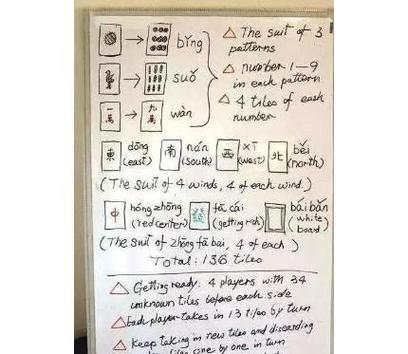 bǐng
suǒ
一萬 九萬 wàn
The suit of 3 patterns
number 1–9 in each pattern
4 tiles of each number
東 dōng (east) 南 nán (south) 西 xī (west) 北 běi (north)
(The suit of 4 winds, 4 of each wind.)
中 hóng zhōng (red center) 發 fā cái (getting rich) bái bǎn (white board)
(The suit of zhōng fā bái, 4 of each)
Total: 136 tiles
Getting ready: 4 players with 34 unknown tiles before each side
Each player takes in 13 tiles by turn
Keep taking in new tiles and discarding
tiles one by one in turn